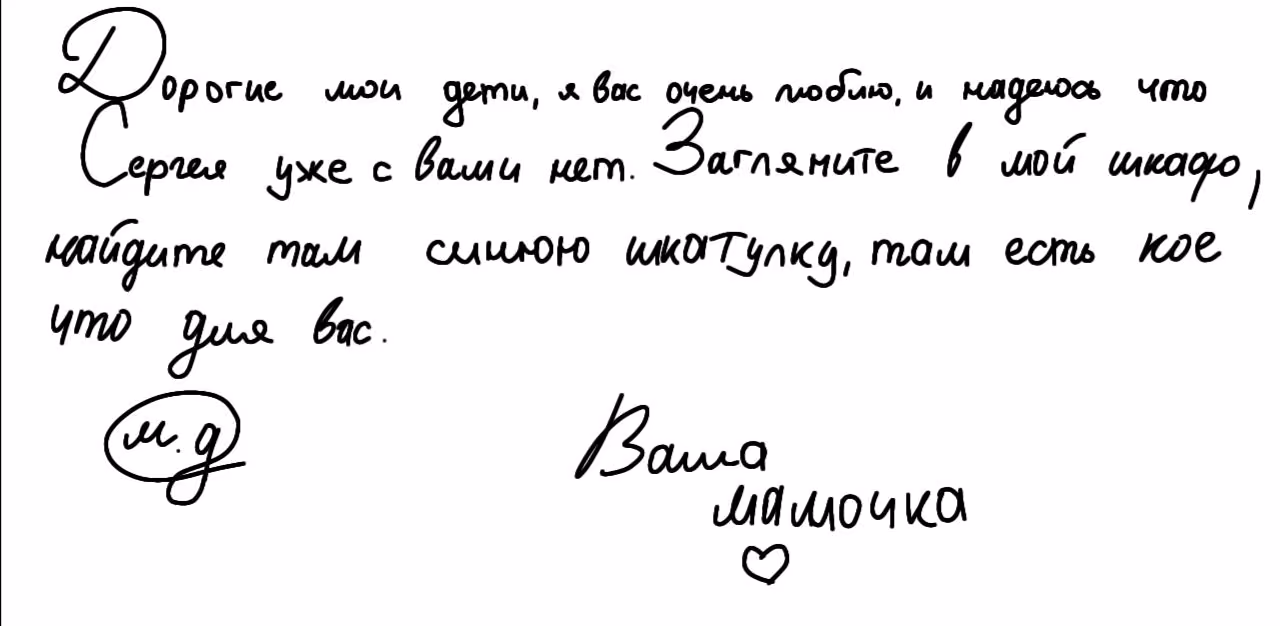 Дорогие мои дети, я вас очень люблю, и надеюсь что
Сергея уже с вами нет. Загляните в мой шкаф,
найдите там синюю шкатулку, там есть кое
что для вас.
м.д
Ваша
мамочка